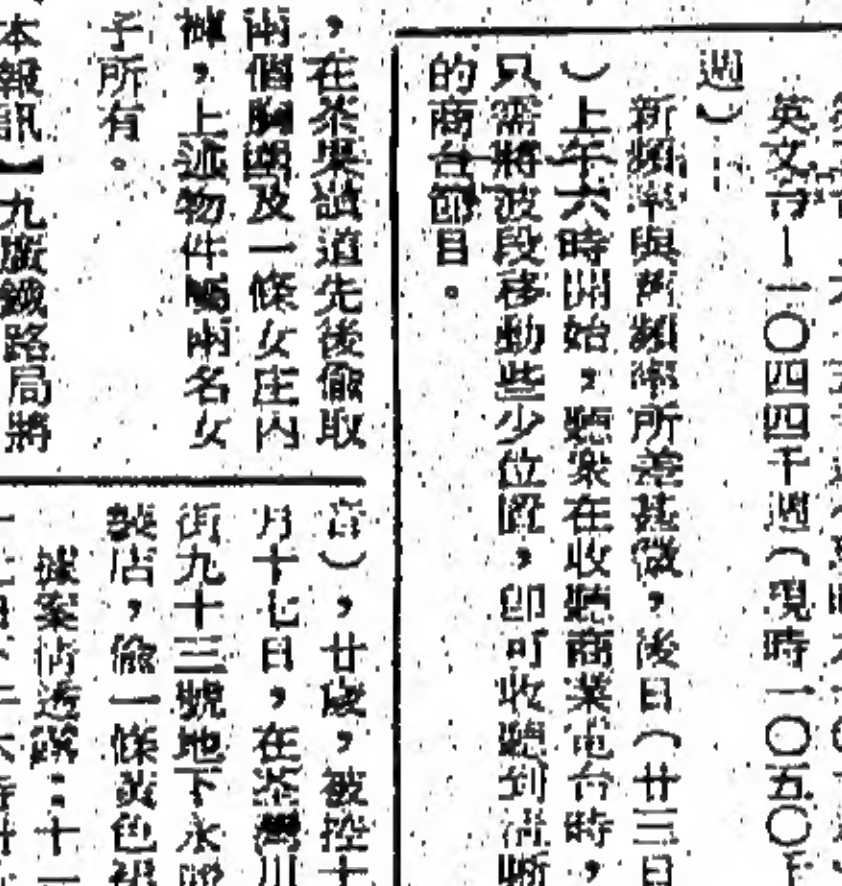 英文台－一〇四四千週（現時一〇五〇千
週）：
新頻率與舊頻率所差甚微，後日（廿三日
）上午六時開始，聽衆在收聽商業電台時，
只需將波段移動些少位置，卽可收聽到清晰
的商台節目。
，在茶果嶺道先後偸取
兩個胸圍及一條女庄內
褲，上述物件屬兩名女
子所有。
本報訊】九廣鐵路局將
音），廿歲，被控十
月十七日，在荃灣川
街九十三號地下永
製店，偸一條黃色裙
據案情透露：十一